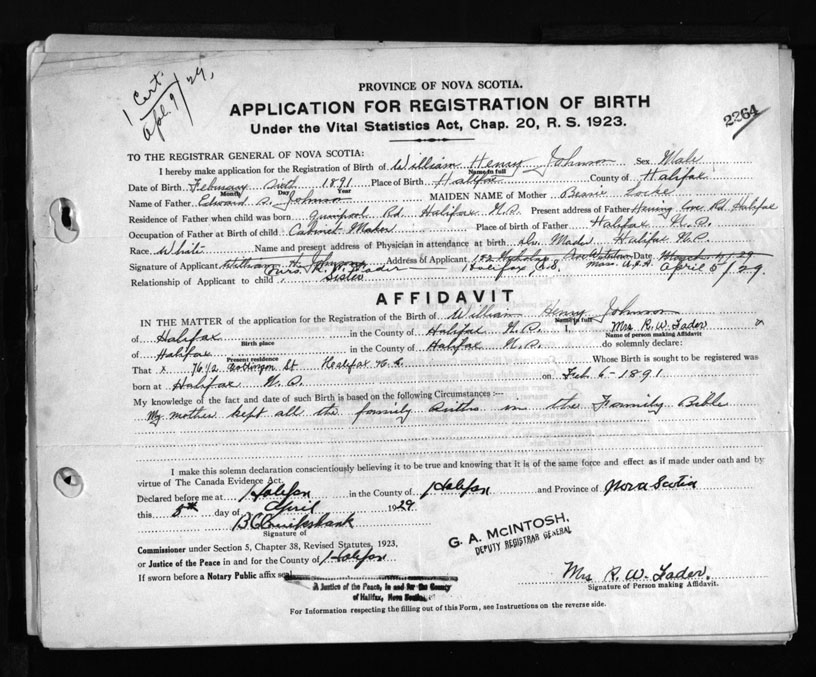 1 Cert.
Apl. 9/29,
PROVINCE OF NOVA SCOTIA.
APPLICATION FOR REGISTRATION OF BIRTH
Under the Vital Statistics Act, Chap. 20, R. S. 1923.
2264
TO THE REGISTRAR GENERAL OF NOVA SCOTIA:
I hereby make application for the Registration of Birth of William Henry Johnson Sex Male
Name in full
Date of Birth February sixth 1891 Place of Birth Halifax County of Halifax
Month Day Year
Name of Father Edward S. Johnson MAIDEN NAME of Mother Bessie Locke
Residence of Father when child was born Quinpool Rd. Halifax N.S. Present address of Father Herring Cove Rd Halifax
Occupation of Father at Birth of child Cabinet Maker Place of birth of Father Halifax N.S.
Race White Name and present address of Physician in attendance at birth Dr. Mader Halifax N.S.
Signature of Applicant William H. Johnson Address of Applicant 152 Mass. U.S.A. Date March 4/29
Mrs. R. W. Fader Halifax N.S. April 5/29
Relationship of Applicant to child Sister
AFFIDAVIT
IN THE MATTER of the application for the Registration of the Birth of William Henry Johnson
Name in full
of Halifax in the County of Halifax N.S. I, Mrs R. W. Fader
Birth place Name of person making Affidavit
of Halifax in the County of Halifax N.S. do solemnly declare:
Present residence
That x 76 1/2 St Halifax N.S. Whose Birth is sought to be registered was
born at Halifax N.S. on Feb. 6-1891
My knowledge of the fact and date of such Birth is based on the following Circumstances :—
My mother kept all the family births in the Family Bible
I make this solemn declaration conscientiously believing it to be true and knowing that it is of the same force and effect as if made under oath and by
virtue of The Canada Evidence Act.
Declared before me at Halifax in the County of Halifax and Province of Nova Scotia
this 5th day of April 1929
B Cruikshank
Signature of
G. A. McINTOSH,
DEPUTY REGISTRAR GENERAL
Commissioner under Section 5, Chapter 38, Revised Statutes, 1923,
or Justice of the Peace in and for the County of Halifax
If sworn before a Notary Public affix seal
A Justice of the Peace, in and for the County
of Halifax, Nova Scotia.
Mrs R. W. Fader.
Signature of Person making Affidavit.
For Information respecting the filling out of this Form, see Instructions on the reverse side.